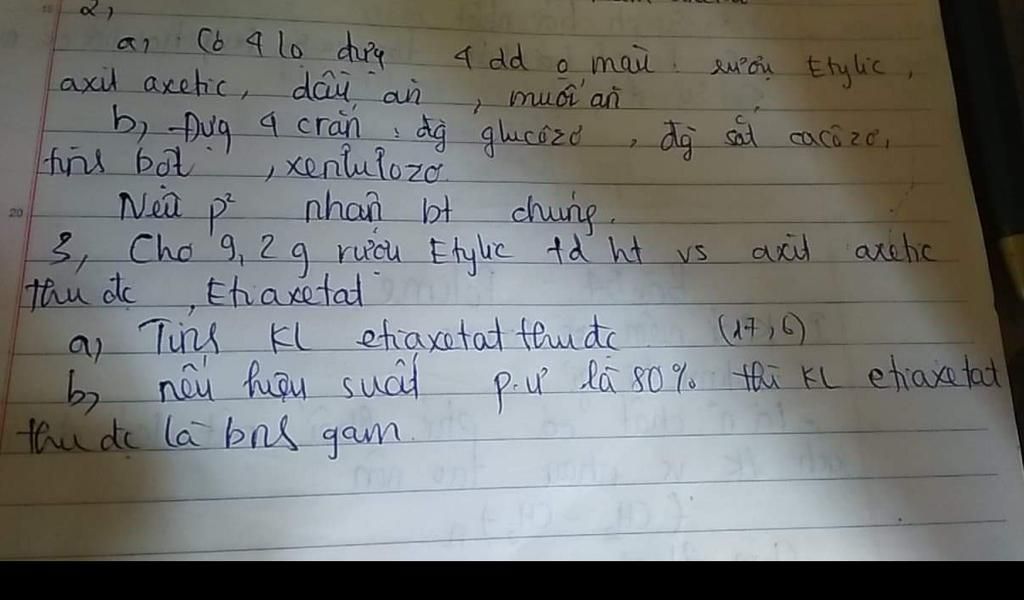 2,
a, Có 4 lọ đựng 4 dd o màu rượu Etylic,
axit axetic, dầu ăn, muối ăn
b, Đựg 4 crắn : đg glucôzơ, đg sắt cacôzơ,
tins bột, xenlulozơ
Nêu p² nhận bt chúng.
3, Cho 9,2g rượu Etylic td ht vs axit axetic
thu đc, Etiaxetat
a) Tins KL etiaxetat thu đc (17,6)
b, nếu hiệu suất p.ư là 80% thì KL etiaxetat
thu đc là bns gam